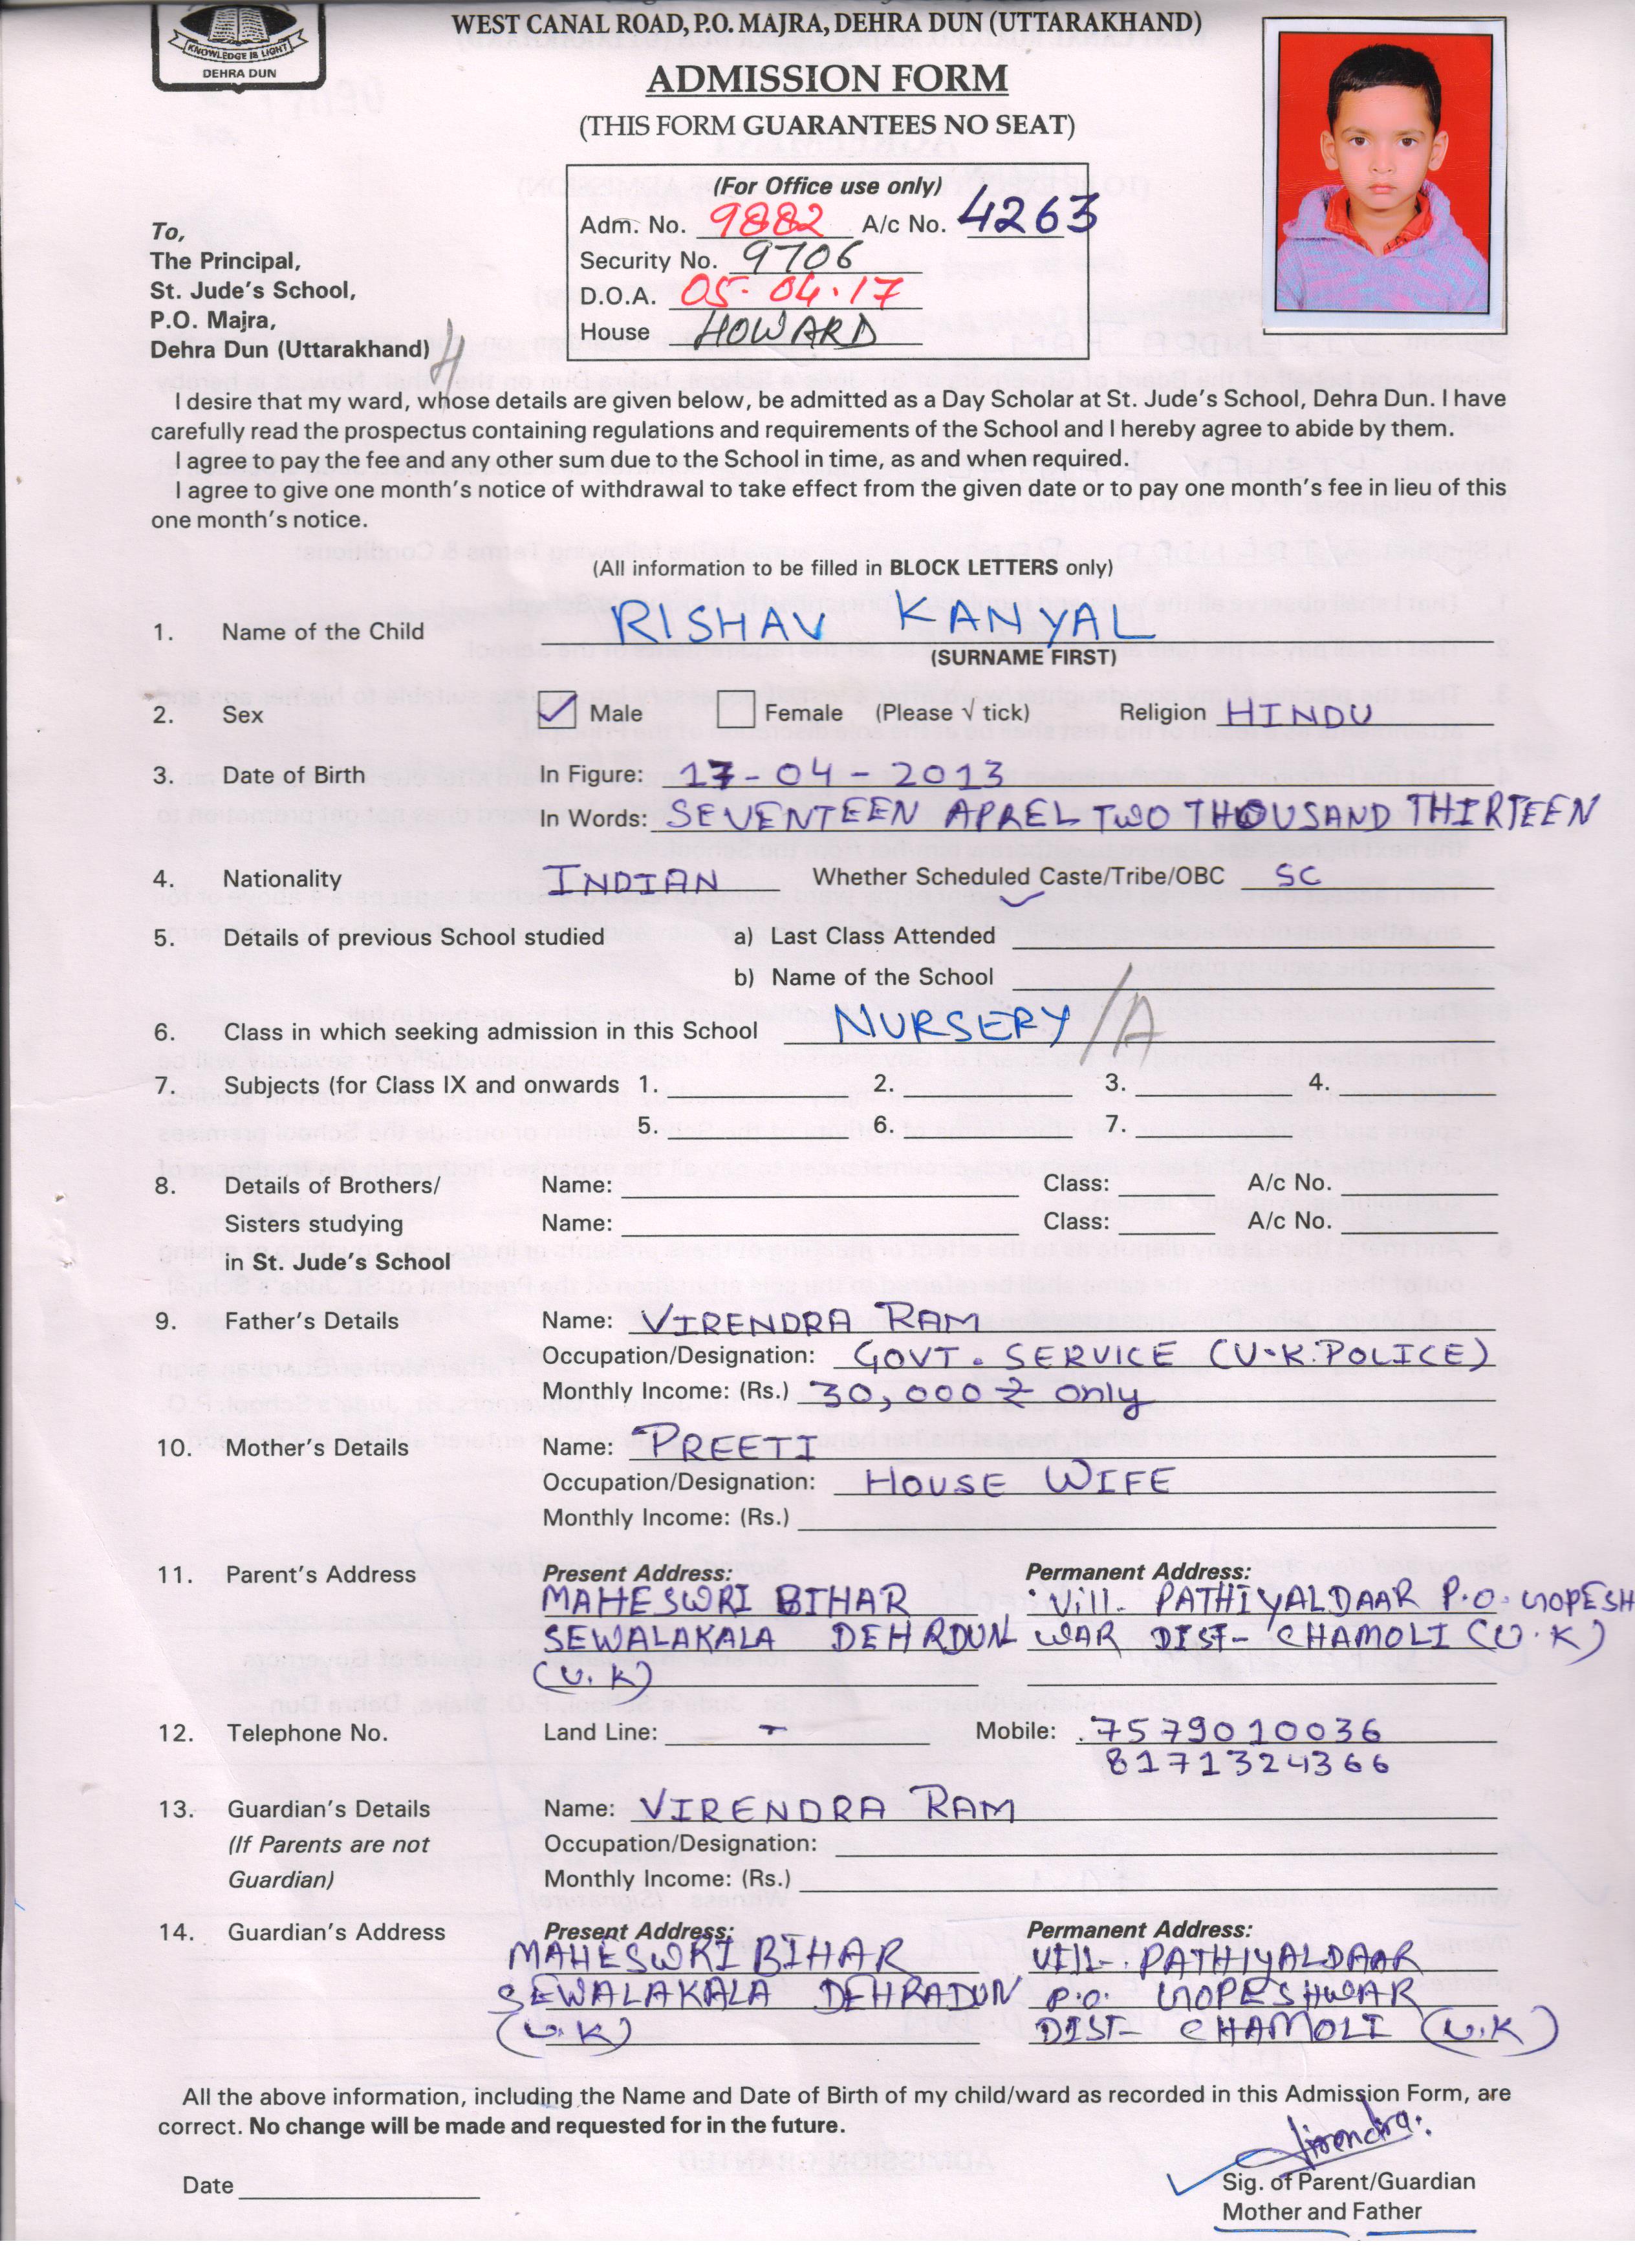 KNOWLEDGE IS LIGHT
DEHRA DUN
WEST CANAL ROAD, P.O. MAJRA, DEHRA DUN (UTTARAKHAND)
ADMISSION FORM
(THIS FORM GUARANTEES NO SEAT)
(For Office use only)
Adm. No. 9882 A/c No. 4263
Security No. 9706
D.O.A. 05.04.17
House HOWARD
To,
The Principal,
St. Jude's School,
P.O. Majra,
Dehra Dun (Uttarakhand)
H
I desire that my ward, whose details are given below, be admitted as a Day Scholar at St. Jude's School, Dehra Dun. I have
carefully read the prospectus containing regulations and requirements of the School and I hereby agree to abide by them.
I agree to pay the fee and any other sum due to the School in time, as and when required.
I agree to give one month's notice of withdrawal to take effect from the given date or to pay one month's fee in lieu of this
one month's notice.
(All information to be filled in BLOCK LETTERS only)
1. Name of the Child RISHAV KANYAL
(SURNAME FIRST)
2. Sex Male Female (Please √ tick) Religion HINDU
3. Date of Birth In Figure: 17-04-2013
In Words: SEVENTEEN APREL TWO THOUSAND THIRTEEN
4. Nationality INDIAN Whether Scheduled Caste/Tribe/OBC SC
5. Details of previous School studied a) Last Class Attended
b) Name of the School
6. Class in which seeking admission in this School NURSERY /A
7. Subjects (for Class IX and onwards 1. 2. 3. 4.
5. 6. 7.
8. Details of Brothers/ Name: Class: A/c No.
Sisters studying Name: Class: A/c No.
in St. Jude's School
9. Father's Details Name: VIRENDRA RAM
Occupation/Designation: GOVT. SERVICE (U.K. POLICE)
Monthly Income: (Rs.) 30,000 ₹ only
10. Mother's Details Name: PREETI
Occupation/Designation: HOUSE WIFE
Monthly Income: (Rs.)
11. Parent's Address Present Address: Permanent Address:
MAHESWRI BIHAR Vill- PATHIYALDAAR P.O. GOPESH
SEWALAKALA DEHRDUN WAR DIST- CHAMOLI (U.K)
(U.K)
12. Telephone No. Land Line: - Mobile: 7579010036
8171324366
13. Guardian's Details Name: VIRENDRA RAM
(If Parents are not Occupation/Designation:
Guardian) Monthly Income: (Rs.)
14. Guardian's Address Present Address: Permanent Address:
MAHESWRI BIHAR VILL-. PATHIYALDAAR
SEWALAKALA DEHRADUN P.O. GOPESHWAR
(U.K) DIST- CHAMOLI (U.K)
All the above information, including the Name and Date of Birth of my child/ward as recorded in this Admission Form, are
correct. No change will be made and requested for in the future.
Virendra
Date
Sig. of Parent/Guardian
Mother and Father